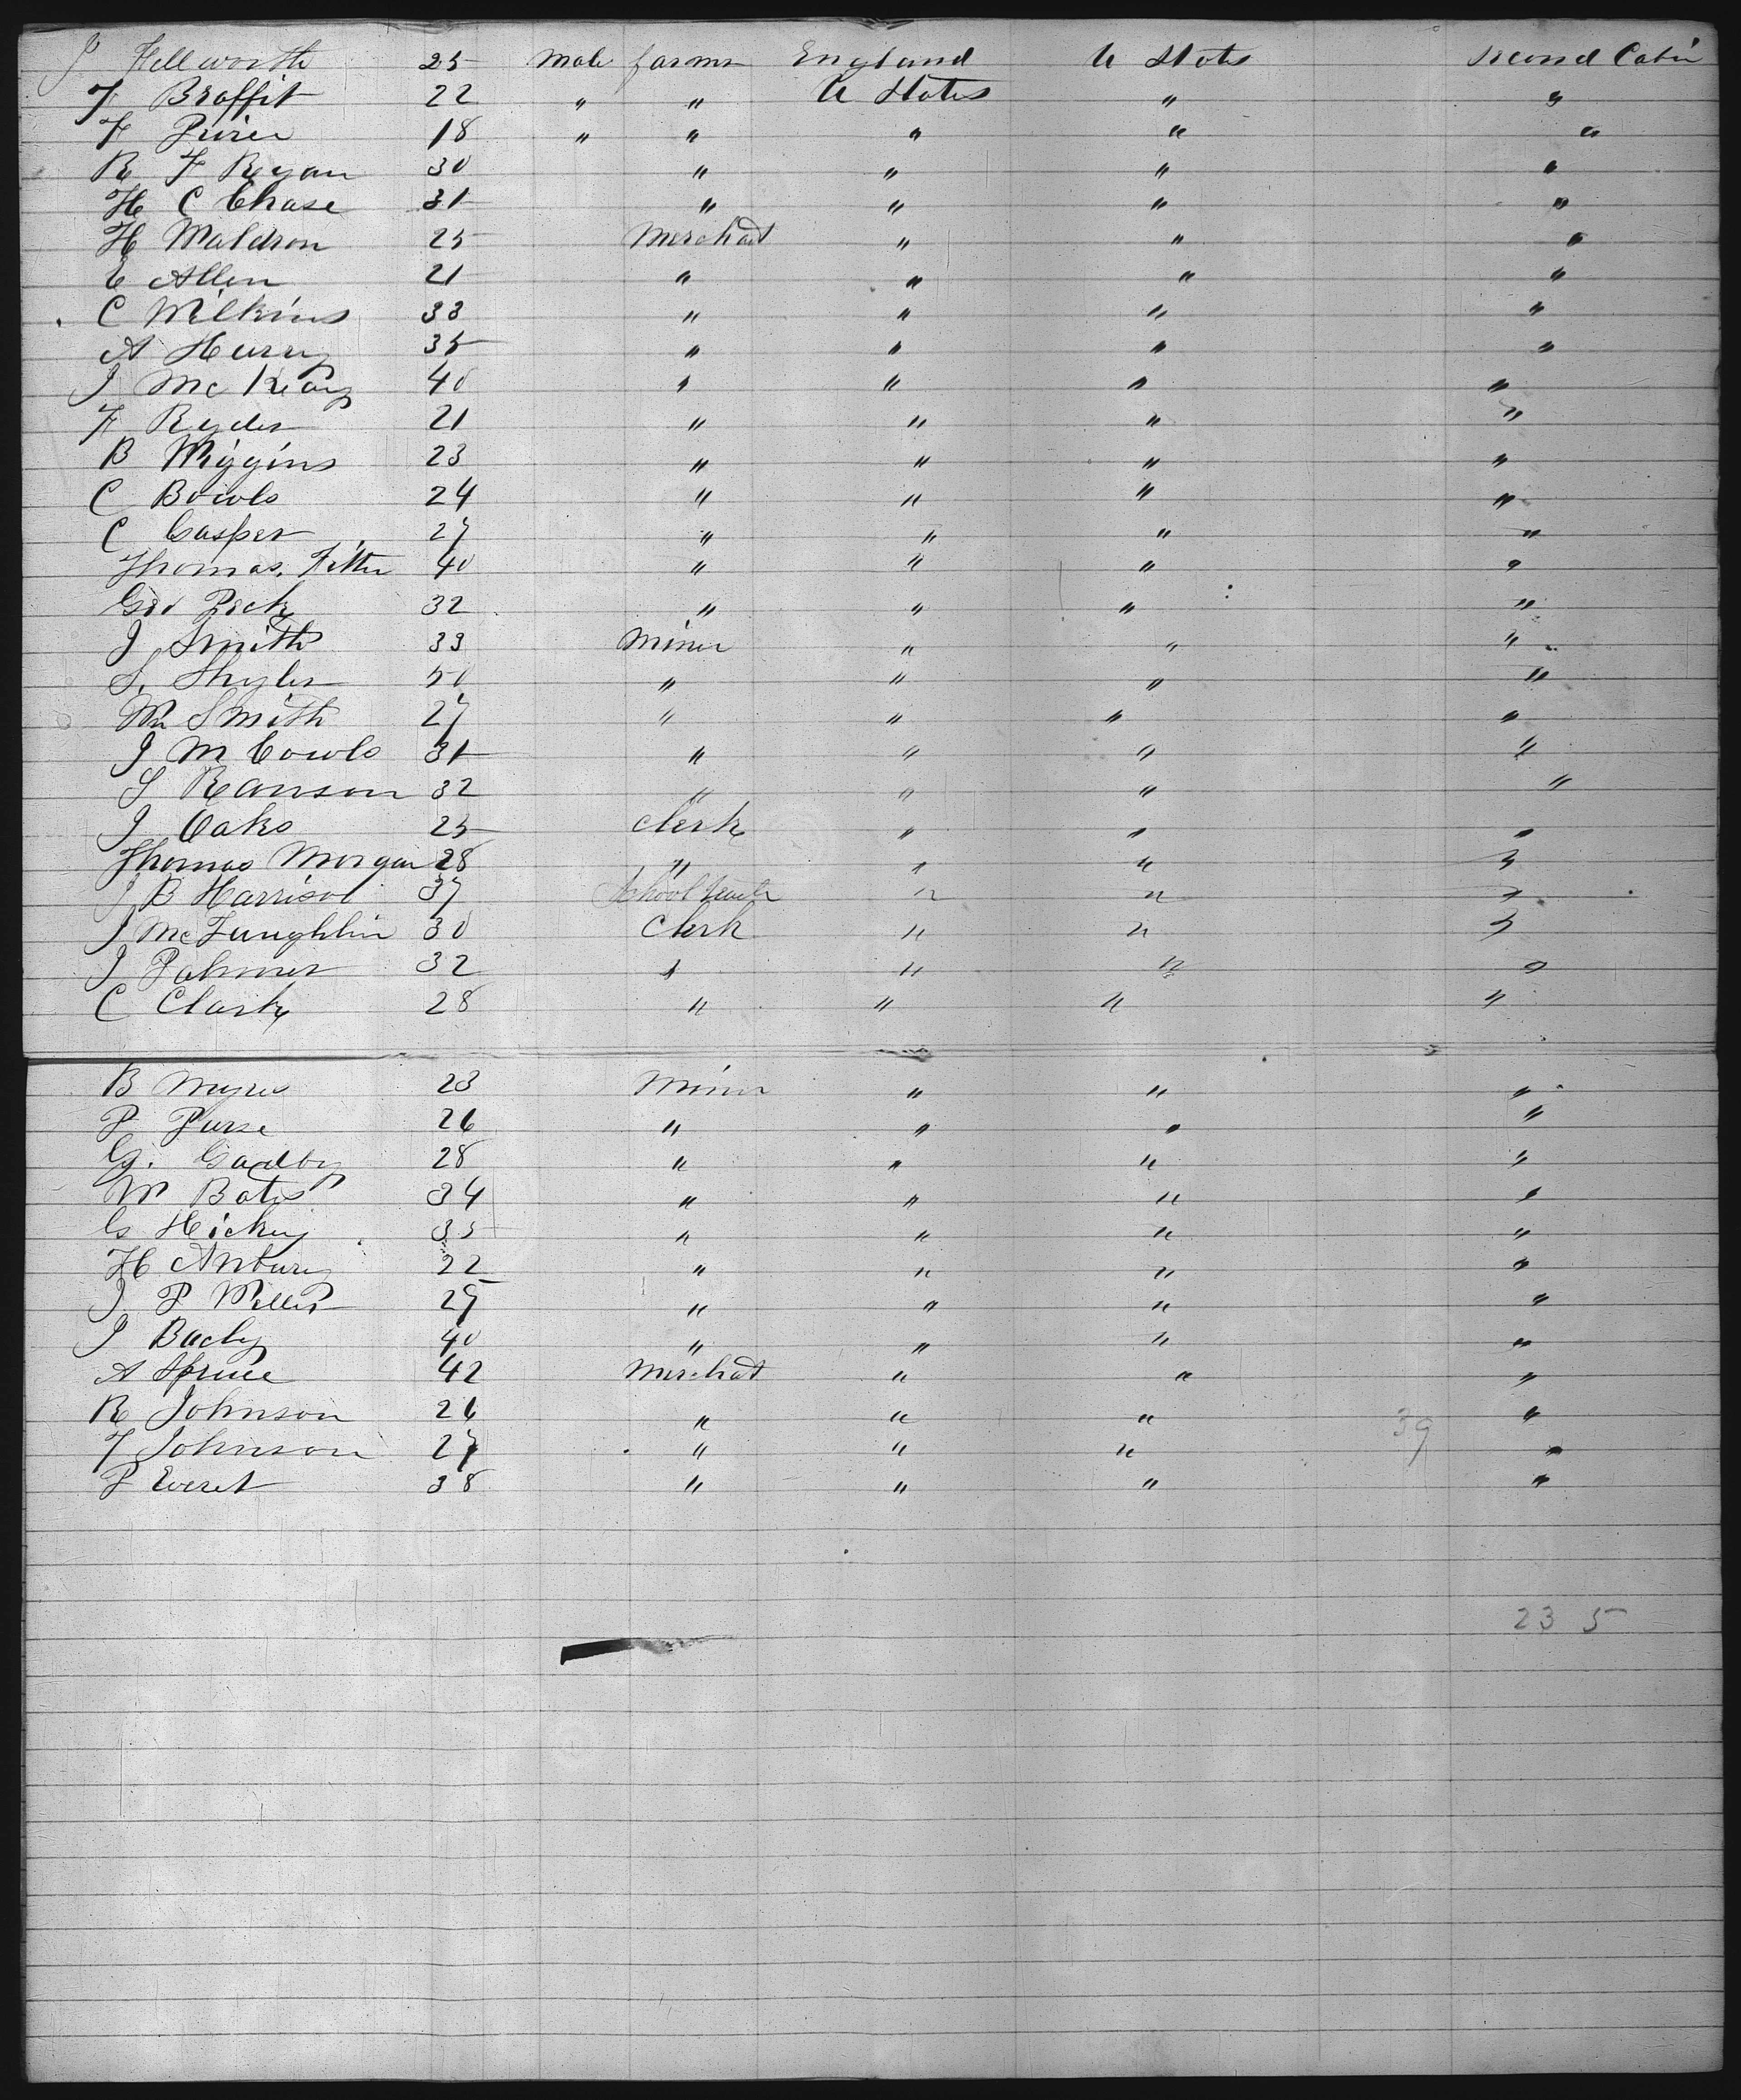 J Hellworth 25 Male farmr England U States Second Cabin
F Braffit 22 " " U States " "
F 18 " " " " "
R F Ryan 30 " " " "
H C Chase 31 " " " "
H Waldron 25 Merchant " " "
E Allen 21 " " " "
C Wilkins 33 " " " "
A Hurry 35 " " " "
J Mc 40 " " " "
F Ryder 21 " " " "
B Wiggins 23 " " " "
C Bowls 24 " " " "
C Casper 27 " " " "
Thomas 40 " " " "
Geo Peck 32 " " " "
J Smith 33 Miner " " "
S. 50 " " " "
Wm Smith 27 " " " "
J M Cowls 31 " " " "
S Ranson 32 " " " "
J Oaks 25 Clerk " " "
Thomas Morgan 28 " " " "
J B Harrison 37 School teacher " " "
J McLaughlin 30 Clerk " " "
J Palmer 32 " " " "
C Clark 28 " " " "
B Myres 23 Miner " " "
P Purse 26 " " " "
G. Gadby 28 " " " "
W Bates 34 " " " "
G Hickey 35 " " " "
H Anbury 22 " " " "
J P Miller 25 " " " "
J 40 " " " "
A Spruce 42 Merchat " " "
R Johnson 26 " " " "
F Johnson 27 " " " 39 "
P Everet 38 " " " "
23 5